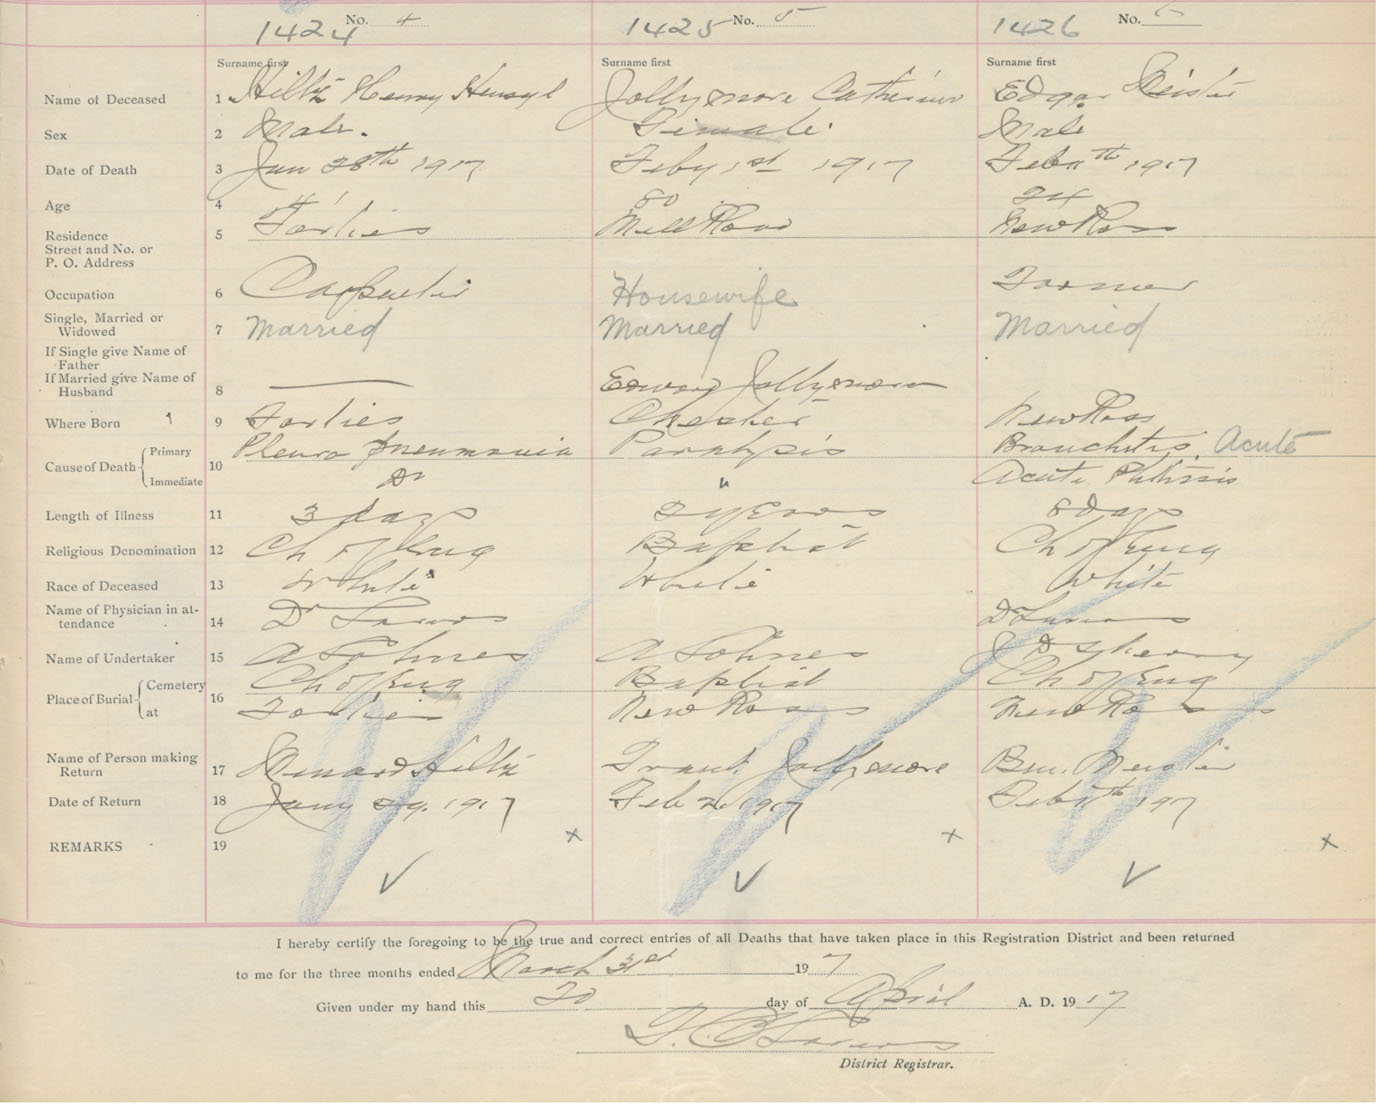 1424 No. 4 1425 No. 5 1426 No. 6
Surname first Surname first Surname first
Name of Deceased 1 Hiltz Henry Jollymore Catherine Edgar Meister
Sex 2 Male. Female. Male
Date of Death 3 Jan 28th 1917 Feby 1st 1917 Feb 11th 1917
Age 4 80 24
Residence
Street and No. or
P. O. Address 5 Forties Mill Road New Ross
Occupation 6 Carpenter Housewife Farmer
Single, Married or
Widowed 7 Married Married Married
If Single give Name of
Father
If Married give Name of
Husband 8 — Edward Jollymore
Where Born 9 Forties Chester New Ross
Cause of Death Primary 10 Pleuro pneumonia Paralysis Bronchitis, Acute
Immediate Do " Acute Phthisis
Length of Illness 11 3 days 2 years 8 days
Religious Denomination 12 Ch of Eng Baptist Ch of Eng
Race of Deceased 13 White White White
Name of Physician in at-
tendance 14 Dr Lavers Dr Lavers
Name of Undertaker 15 A
Place of Burial Cemetery 16 Ch of Eng Baptist Ch of Eng
at Forties New Ross New Ross
Name of Person making
Return 17 Hiltz Jollymore Meister
Date of Return 18 Jany 29. 1917 Feb 2 1917 Feb 11th 1917
REMARKS 19 x x x
I hereby certify the foregoing to be the true and correct entries of all Deaths that have taken place in this Registration District and been returned
to me for the three months ended March 31st 19 17
Given under my hand this 20 day of April A. D. 19 17
Lavers
District Registrar.